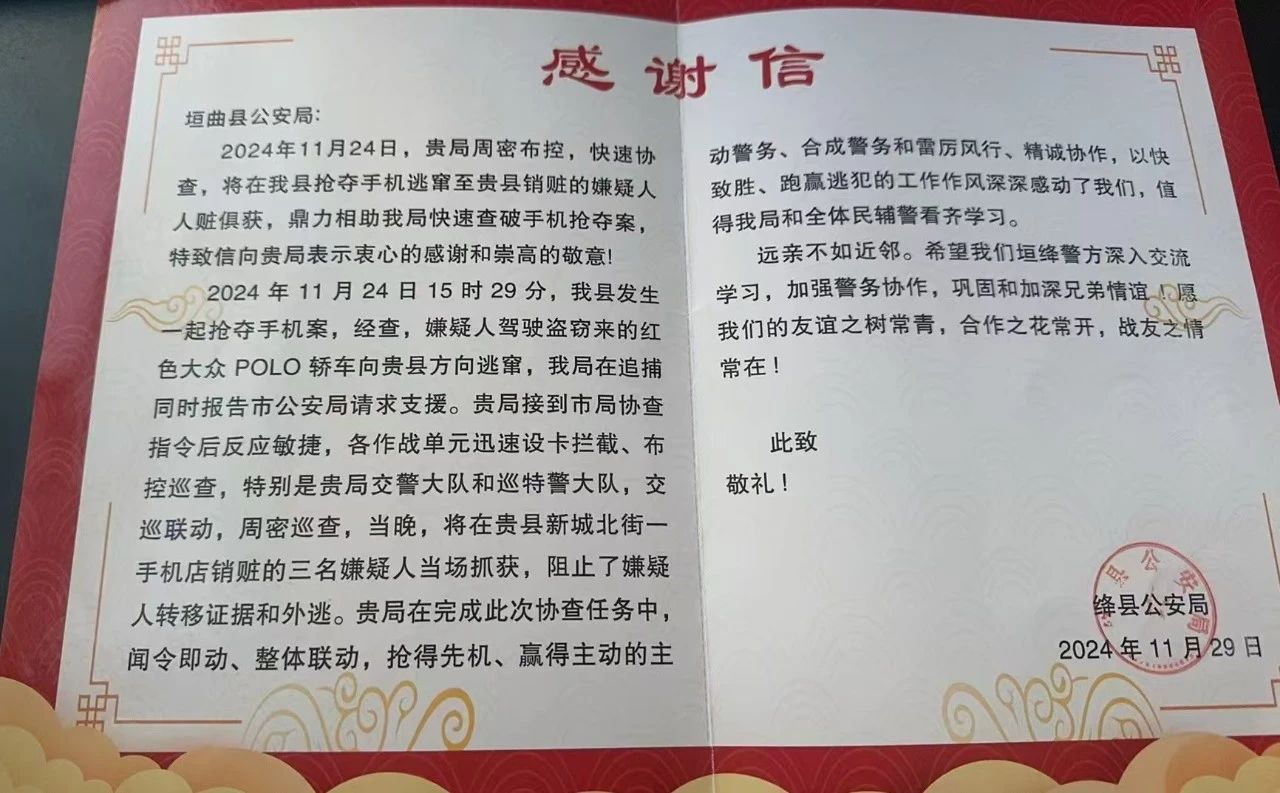 感谢信
垣曲县公安局:
2024年11月24日，贵局周密布控，快速协
查，将在我县抢夺手机逃窜至贵县销赃的嫌疑人
人赃俱获，鼎力相助我局快速查破手机抢夺案，
特致信向贵局表示衷心的感谢和崇高的敬意!
2024 年 11 月 24 日 15 时 29 分，我县发生
一起抢夺手机案，经查，嫌疑人驾驶盗窃来的红
色大众 POLO 轿车向贵县方向逃窜，我局在追捕
同时报告市公安局请求支援。贵局接到市局协查
指令后反应敏捷，各作战单元迅速设卡拦截、布
控巡查，特别是贵局交警大队和巡特警大队，交
巡联动，周密巡查，当晚，将在贵县新城北街一
手机店销赃的三名嫌疑人当场抓获，阻止了嫌疑
人转移证据和外逃。贵局在完成此次协查任务中，
闻令即动、整体联动，抢得先机、赢得主动的主
动警务、合成警务和雷厉风行、精诚协作，以快
致胜、跑赢逃犯的工作作风深深感动了我们，值
得我局和全体民辅警看齐学习。
远亲不如近邻。希望我们垣绛警方深入交流
学习，加强警务协作，巩固和加深兄弟情谊！愿
我们的友谊之树常青，合作之花常开，战友之情
常在！
此致
敬礼！
县公安局
绛县公安局
2024 年 11 月 29 日